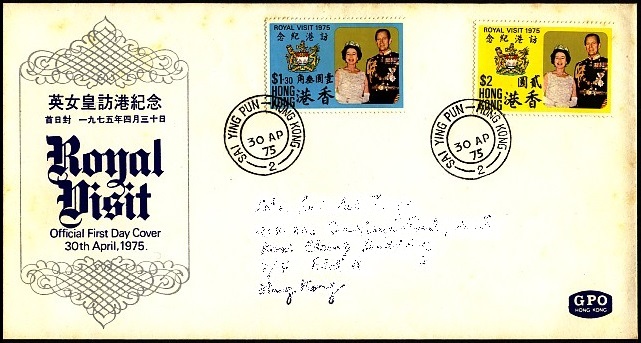 英女皇訪港紀念
首日封 一九七五年四月三十日
Royal
Visit
Official First Day Cover
30th April, 1975.
ROYAL VISIT 1975
念紀港訪
$1·30
角叁圓壹
HONG KONG
港香
ROYAL VISIT 1975
念紀港訪
$2
圓貳
HONG KONG
港香
SAI YING PUN — HONG KONG
30 AP
75
2
SAI YING PUN — HONG KONG
30 AP
75
2
Building
Hong Kong
GPO
HONG KONG